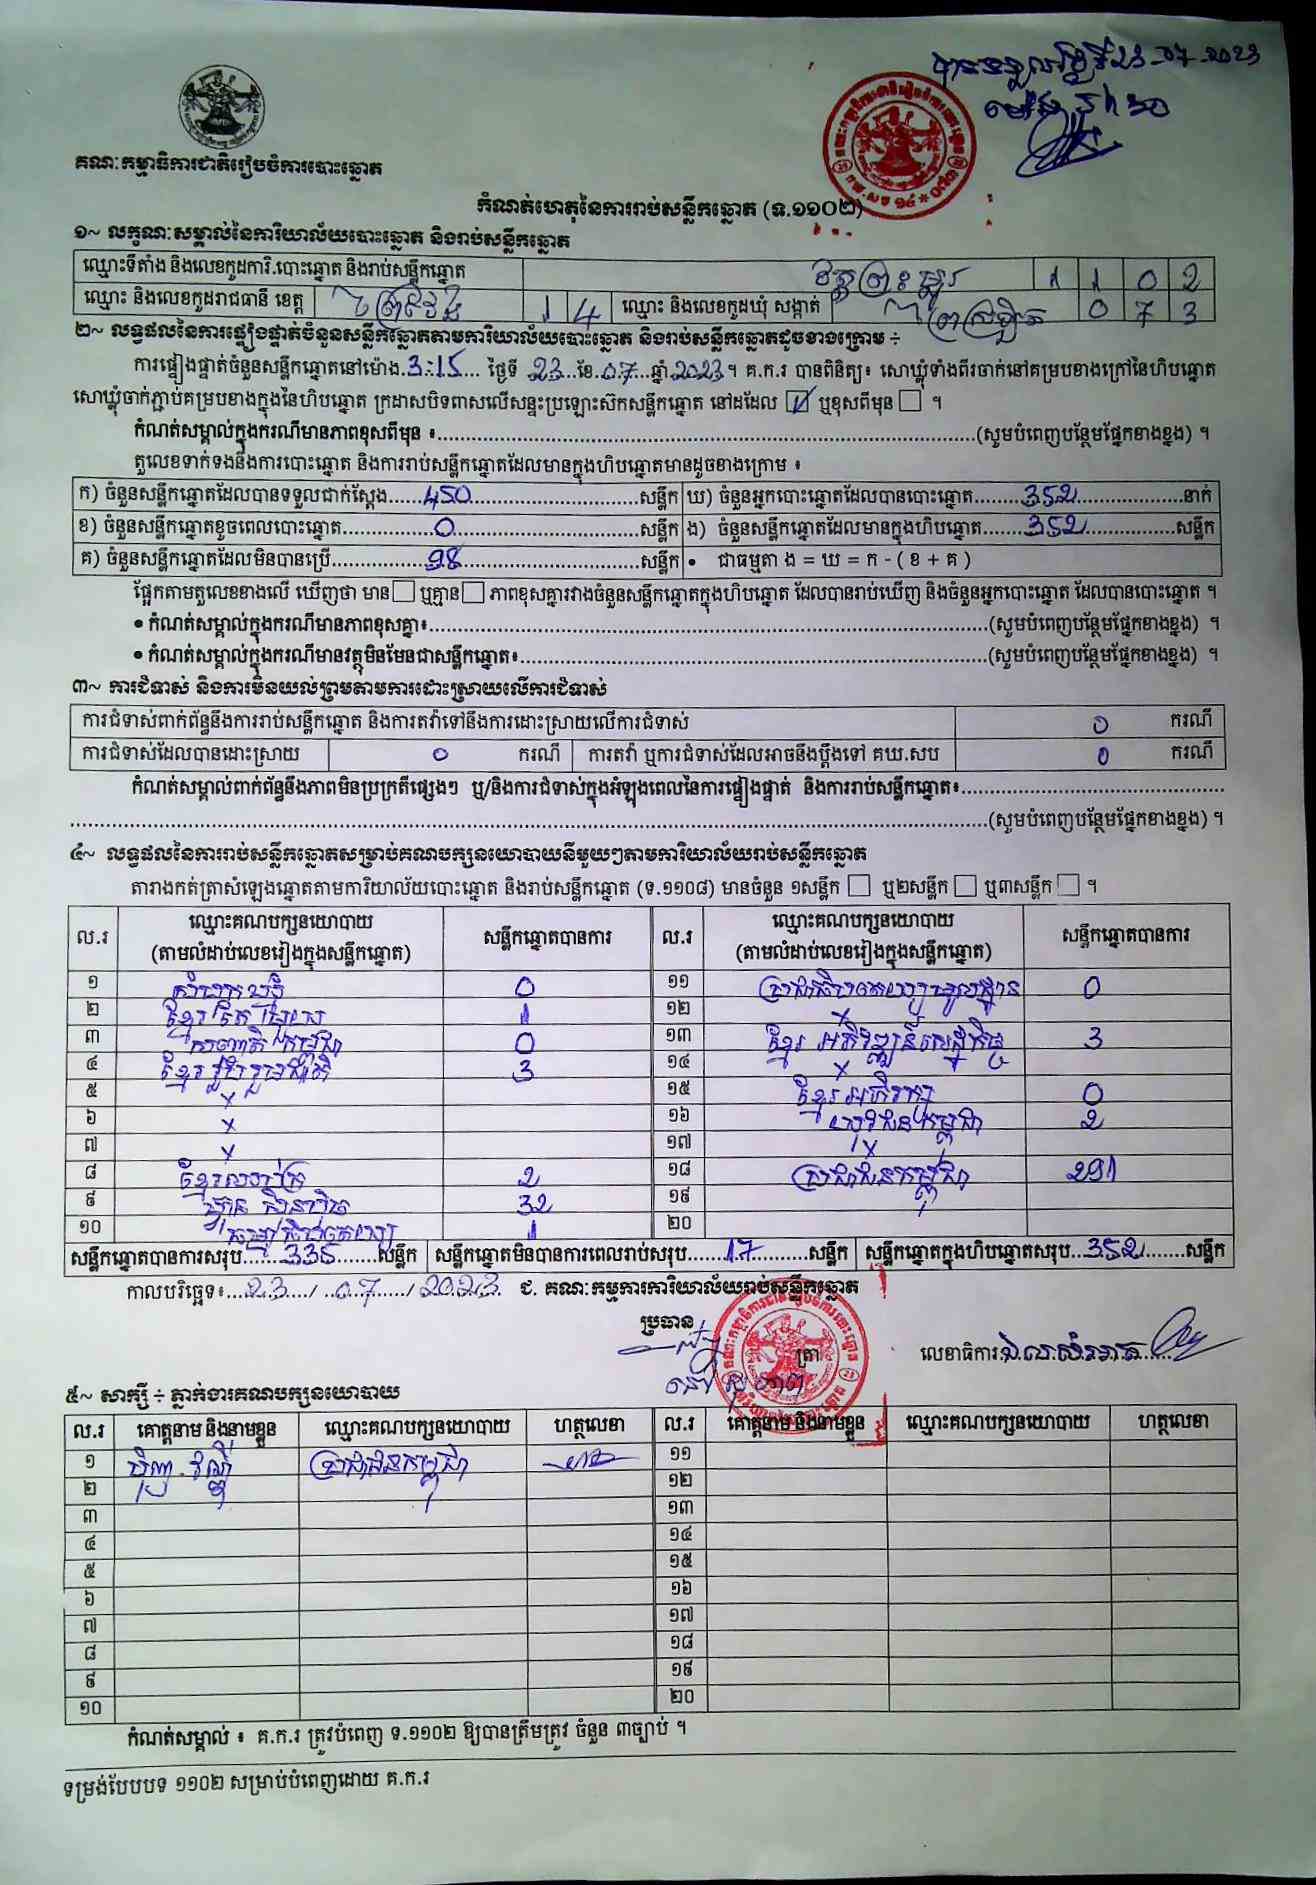 បានទទួលថ្ងៃទី23-07-2023
គណៈកម្មាធិការជាតិរៀបចំការបោះឆ្នោត
កំណត់ហេតុនៃការរាប់សន្លឹកឆ្នោត (ទ.១១០២)
១~ លក្ខណៈសម្គាល់នៃការិយាល័យបោះឆ្នោត និងរាប់សន្លឹកឆ្នោត
ឈ្មោះទីតាំង និងលេខកូដការិ.បោះឆ្នោត និងរាប់សន្លឹកឆ្នោត វត្តព្រះធ្មួរ 1 1 0 2
ឈ្មោះ និងលេខកូដរាជធានី ខេត្ត ព្រៃវែង 1 4 ឈ្មោះ និងលេខកូដឃុំ សង្កាត់ 0 7 3
២~ លទ្ធផលនៃការផ្ទៀងផ្ទាត់ចំនួនសន្លឹកឆ្នោតតាមការិយាល័យបោះឆ្នោត និងរាប់សន្លឹកឆ្នោតដូចខាងក្រោម ÷
ការផ្ទៀងផ្ទាត់ចំនួនសន្លឹកឆ្នោតនៅម៉ោង.3:15.... ថ្ងៃទី 23...ខែ.07...ឆ្នាំ 2023។ គ.ក.រ បានពិនិត្យ៖ សោឃ្លុំទាំងពីរចាក់នៅគម្របខាងក្រៅនៃហិបឆ្នោត
សោឃ្លុំចាក់ភ្ជាប់គម្របខាងក្នុងនៃហិបឆ្នោត ក្រដាសបិទពាសលើសន្ទះប្រឡោះស៊កសន្លឹកឆ្នោត នៅដដែល ☑ ឬខុសពីមុន ☐ ។
កំណត់សម្គាល់ក្នុងករណីមានភាពខុសពីមុន ៖....................(សូមបំពេញបន្ថែមផ្នែកខាងខ្នង) ។
តួលេខទាក់ទងនឹងការបោះឆ្នោត និងការរាប់សន្លឹកឆ្នោតដែលមានក្នុងហិបឆ្នោតមានដូចខាងក្រោម ៖
ក) ចំនួនសន្លឹកឆ្នោតដែលបានទទួលជាក់ស្តែង......450..........សន្លឹក ឃ) ចំនួនអ្នកបោះឆ្នោតដែលបានបោះឆ្នោត........352..........នាក់
ខ) ចំនួនសន្លឹកឆ្នោតខូចពេលបោះឆ្នោត..........0..........សន្លឹក ង) ចំនួនសន្លឹកឆ្នោតដែលមានក្នុងហិបឆ្នោត.......352..........សន្លឹក
គ) ចំនួនសន្លឹកឆ្នោតដែលមិនបានប្រើ..........98..........សន្លឹក • ជាធម្មតា ង = ឃ = ក - ( ខ + គ )
ផ្អែកតាមតួលេខខាងលើ ឃើញថា មាន ☐ ឬគ្មាន ☐ ភាពខុសគ្នារវាងចំនួនសន្លឹកឆ្នោតក្នុងហិបឆ្នោត ដែលបានរាប់ឃើញ និងចំនួនអ្នកបោះឆ្នោត ដែលបានបោះឆ្នោត ។
• កំណត់សម្គាល់ក្នុងករណីមានភាពខុសគ្នា៖....................(សូមបំពេញបន្ថែមផ្នែកខាងខ្នង) ។
• កំណត់សម្គាល់ក្នុងករណីមានវត្ថុមិនមែនជាសន្លឹកឆ្នោត៖....................(សូមបំពេញបន្ថែមផ្នែកខាងខ្នង) ។
៣~ ការជំទាស់ និងការមិនយល់ព្រមតាមការដោះស្រាយលើការជំទាស់
ការជំទាស់ពាក់ព័ន្ធនឹងការរាប់សន្លឹកឆ្នោត និងការតវ៉ាទៅនឹងការដោះស្រាយលើការជំទាស់ 0 ករណី
ការជំទាស់ដែលបានដោះស្រាយ 0 ករណី ការតវ៉ា ឬការជំទាស់ដែលអាចនឹងប្តឹងទៅ គឃ.សប 0 ករណី
កំណត់សម្គាល់ពាក់ព័ន្ធនឹងភាពមិនប្រក្រតីផ្សេងៗ ឬ/និងការជំទាស់ក្នុងអំឡុងពេលនៃការផ្ទៀងផ្ទាត់ និងការរាប់សន្លឹកឆ្នោត៖....................
....................(សូមបំពេញបន្ថែមផ្នែកខាងខ្នង) ។
៤~ លទ្ធផលនៃការរាប់សន្លឹកឆ្នោតសម្រាប់គណបក្សនយោបាយនីមួយៗតាមការិយាល័យរាប់សន្លឹកឆ្នោត
តារាងកត់ត្រាសំឡេងឆ្នោតតាមការិយាល័យបោះឆ្នោត និងរាប់សន្លឹកឆ្នោត (ទ.១១០៨) មានចំនួន ១សន្លឹក ☐ ឬ២សន្លឹក ☐ ឬ៣សន្លឹក ☐ ។
ល.រ ឈ្មោះគណបក្សនយោបាយ (តាមលំដាប់លេខរៀងក្នុងសន្លឹកឆ្នោត) សន្លឹកឆ្នោតបានការ ល.រ ឈ្មោះគណបក្សនយោបាយ (តាមលំដាប់លេខរៀងក្នុងសន្លឹកឆ្នោត) សន្លឹកឆ្នោតបានការ
១ សំបុកឃ្មុំ 0 ១១ ប្រជាធិបតេយ្យមូលដ្ឋាន 0
២ ខ្មែរ 1 ១២ x
៣ សញ្ជាតិកម្ពុជា 0 ១៣ ខ្មែរ អភិវឌ្ឍន៍សេដ្ឋកិច្ច 3
៤ ខ្មែររួបរួមជាតិ 3 ១៤ x
៥ x ១៥ ខ្មែរអភិរក្ស 0
៦ x ១៦ យុវជនកម្ពុជា 2
៧ x ១៧ x
៨ ខ្មែរឈប់ក្រ 2 ១៨ ប្រជាជនកម្ពុជា 291
៩ ហ្វ៊ុនស៊ិនប៉ិច 32 ១៩
១០ ធម្មាធិបតេយ្យ 1 ២០
សន្លឹកឆ្នោតបានការសរុប......335......សន្លឹក សន្លឹកឆ្នោតមិនបានការពេលរាប់សរុប......17.......សន្លឹក សន្លឹកឆ្នោតក្នុងហិបឆ្នោតសរុប..352......សន្លឹក
កាលបរិច្ឆេទ៖...23..../..07..../2023. ជ. គណៈកម្មការការិយាល័យរាប់សន្លឹកឆ្នោត
ប្រធាន
ត្រា លេខាធិការ
៥~ សាក្សី ÷ ភ្នាក់ងារគណបក្សនយោបាយ
ល.រ គោត្តនាម និងនាមខ្លួន ឈ្មោះគណបក្សនយោបាយ ហត្ថលេខា ល.រ គោត្តនាម និងនាមខ្លួន ឈ្មោះគណបក្សនយោបាយ ហត្ថលេខា
១ ប្រជាជនកម្ពុជា ១១
២ ១២
៣ ១៣
៤ ១៤
៥ ១៥
៦ ១៦
៧ ១៧
៨ ១៨
៩ ១៩
១០ ២០
កំណត់សម្គាល់ ៖ គ.ក.រ ត្រូវបំពេញ ទ.១១០២ ឱ្យបានត្រឹមត្រូវ ចំនួន ៣ច្បាប់ ។
ទម្រង់បែបបទ ១១០២ សម្រាប់បំពេញដោយ គ.ក.រ